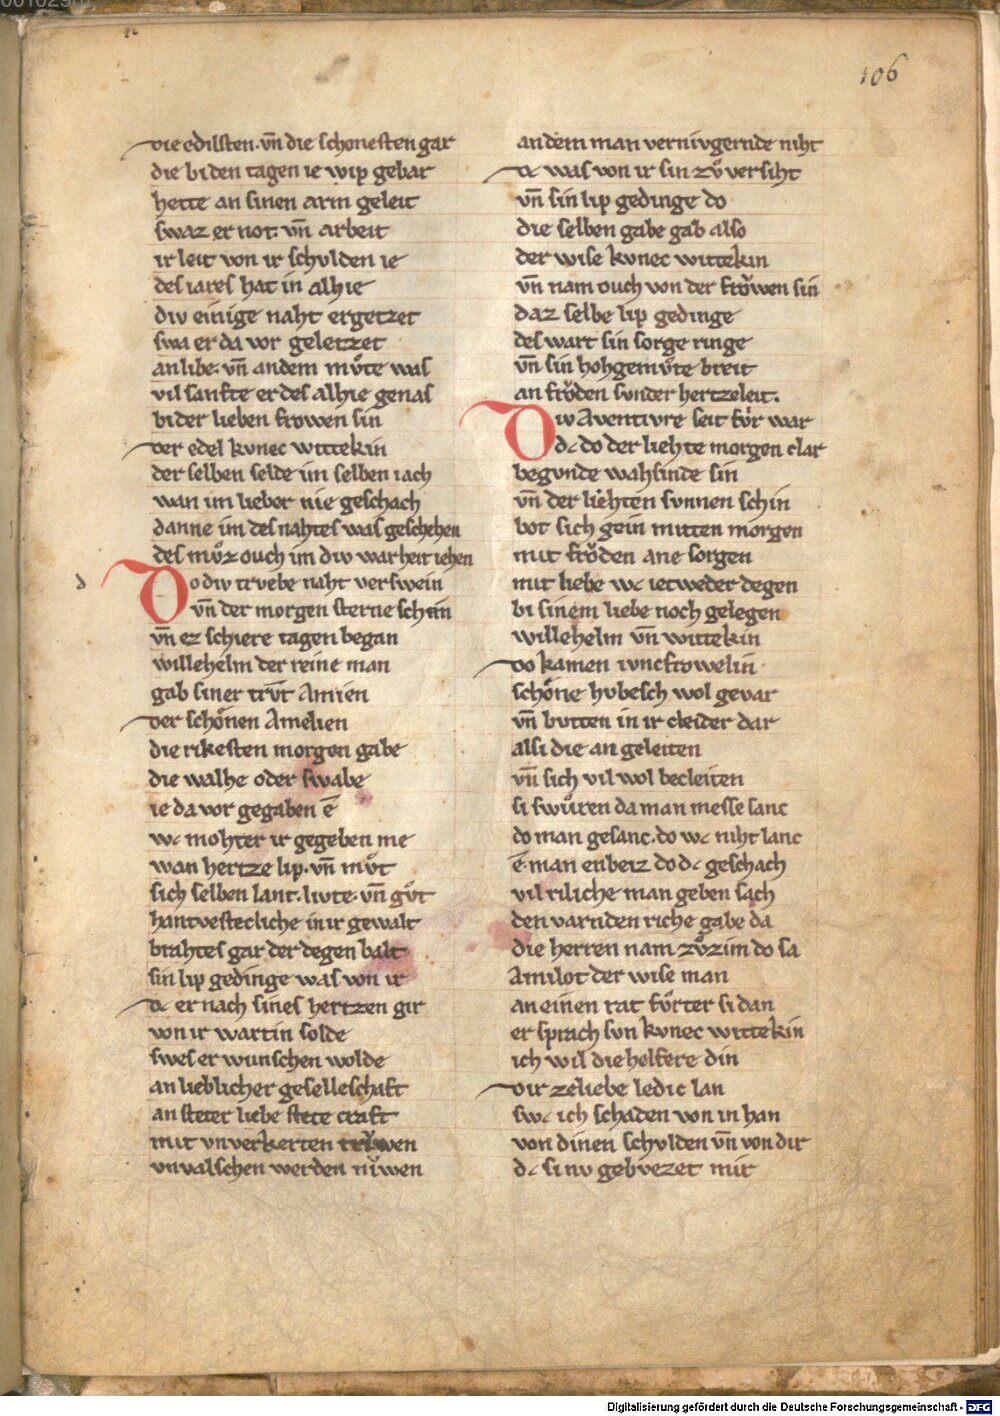 106
die edilsten. vn̄ die schonesten gar
die bi den tagen ie wip gebar
hette an sinen arm geleit
swaz er not. vn̄ arbeit
ir leit von ir schvlden ie
des iares hat in alhie
div einige naht ergetzet
swa er da vor geletzet
an libe. vn̄ an dem mv̊te was
vil sanfte er des alhie genas
bi der lieben frowen sin
der edel kvnec wittekin
der selben selde im selben iach
wan im lieber nie geschach
danne im des nahtes was geschehen
des mv̊z ouch im div warheit iehen
d
Do div trvebe naht verswein
vn̄ der morgen sterne schein
vn̄ ez schiere tagen began
willehelm der reine man
gab siner trv̊t Amien
der schoͤnen Amelien
die rikesten morgen gabe
die walhe oder swabe
ie da vor gegaben ē
wc mohter ir gegeben me
wan hertze lip. vn̄ mv̊t
sich selben lant. livte. vn̄ gv̊t
hantvestecliche in ir gewalt
brahtes gar der degen balt
sin lip gedinge was von ir
dc er nach sines hertzen gir
von ir wartin solde
swes er wunschen wolde
an lieblicher geselleschaft
an steter liebe stete craft
mit vnverkerten trv̊wen
vnvalschen werden nv̊wen
an dem man vernivgernde niht
dc was von ir sin zv̊ versiht
vn̄ sin lip gedinge do
die selben gabe gab also
der wise kvnec wittekin
vn̄ nam ouch von der froͮwen sin
daz selbe lip gedinge
des wart sin sorge ringe
vn̄ sin hohgemv̊te breit
an froͤden svnder hertzeleit.
Div Aventivre seit fv̊r war
dc do der liehte morgen clar
begvnde wahsinde sin
vn̄ der liehten svnnen schin
bot sich gein mitten morgen
mit froͤden ane sorgen
mit liebe wc ietweder degen
bi sinem liebe noch gelegen
willehelm vn̄ wittekin
do kamen ivncfrowelin
schoͤne hvbesch wol gevar
vn̄ bvtten in ir cleider dar
alsi die an geleiten
vn̄ sich vil wol becleiten
si fwv̊ren da man messe sanc
do man gesanc. do wc niht lanc
ē. man enbeiz do dc geschach
vil riliche man geben sach
den varnden riche gabe da
die herren nam zv̊zim do sa
Amilot der wise man
an einen rat fv̊rter si dan
er sprach svn kvnec wittekin
ich wil die helfere din
dir zeliebe ledic lan
swc ich schaden von in han
von dinen schvlden vn̄ von dir
dc si nv gebvezet mir
Digitalisierung gefördert durch die Deutsche Forschungsgemeinschaft - DFG